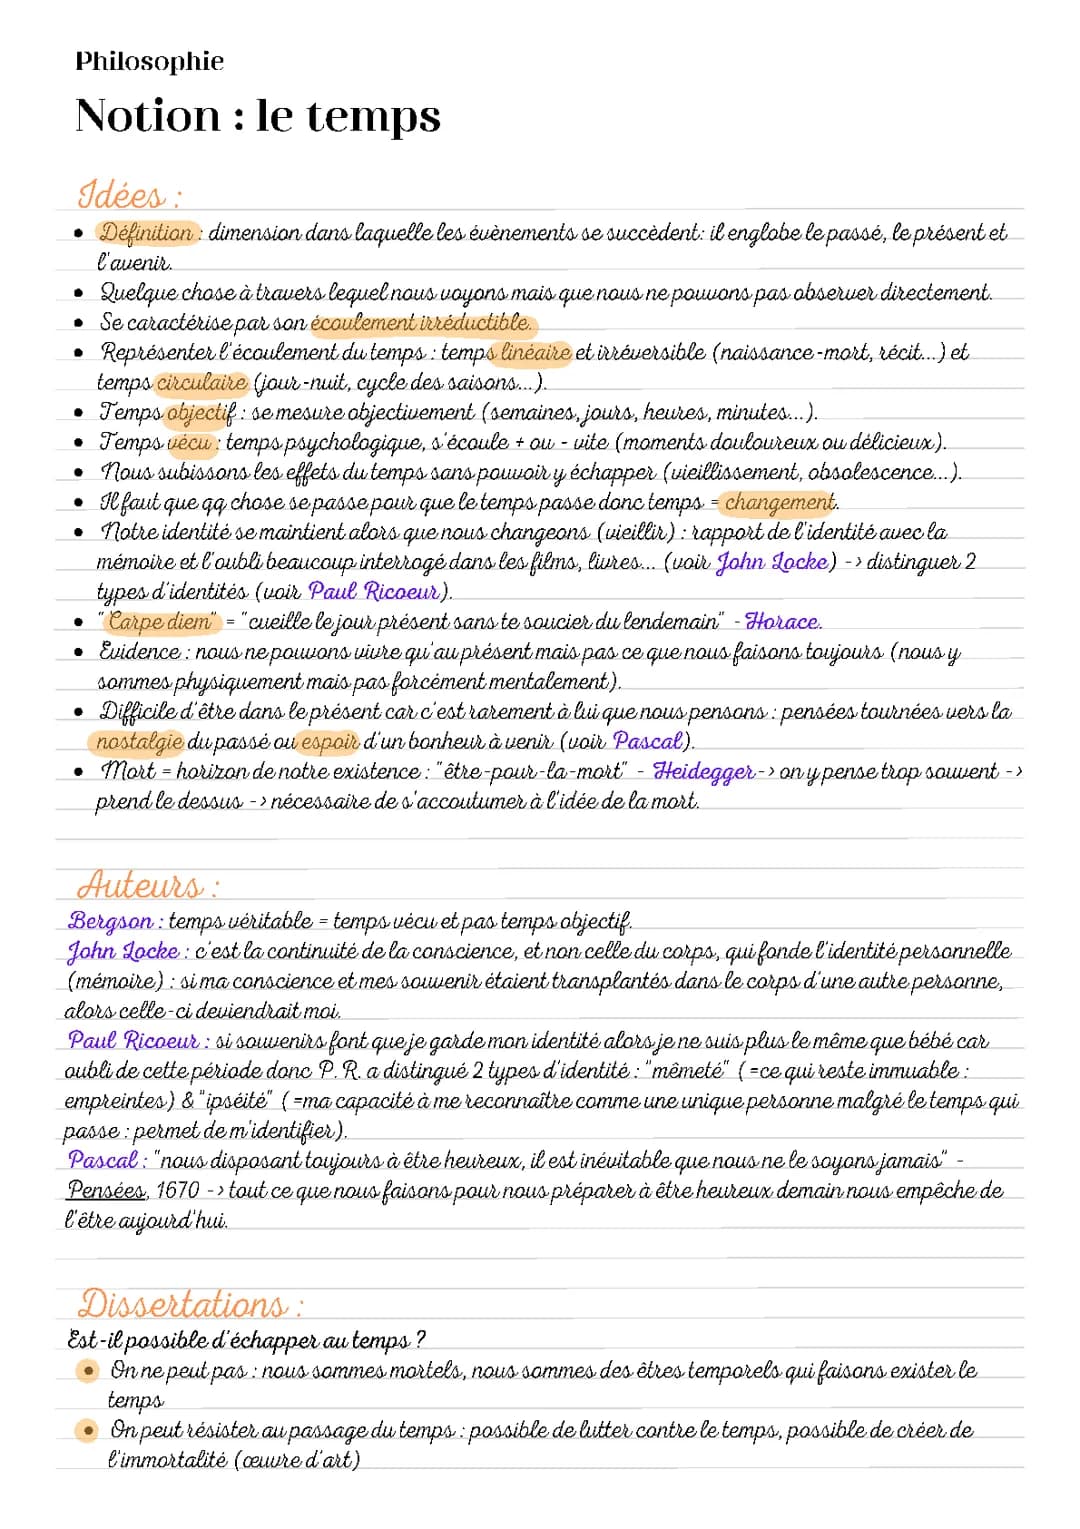 Philosophie
Notion : le temps
Idées :
• Définition : dimension dans laquelle les évènements se succèdent: il englobe le passé, le présent et
l'avenir.
• Quelque chose à travers lequel nous voyons mais que nous ne pouvons pas observer directement.
• Se caractérise par son écoulement irréductible.
• Représenter l'écoulement du temps : temps linéaire et irréversible (naissance-mort, récit...) et
temps circulaire (jour-nuit, cycle des saisons...).
• Temps objectif : se mesure objectivement (semaines, jours, heures, minutes...).
• Temps vécu : temps psychologique, s'écoule + ou - vite (moments douloureux ou délicieux).
• Nous subissons les effets du temps sans pouvoir y échapper (vieillissement, obsolescence...).
• Il faut que qq chose se passe pour que le temps passe donc temps = changement.
• Notre identité se maintient alors que nous changeons (vieillir) : rapport de l'identité avec la
mémoire et l'oubli beaucoup interrogé dans les films, livres... (voir John Locke) -> distinguer 2
types d'identités (voir Paul Ricoeur).
• "Carpe diem" = "cueille le jour présent sans te soucier du lendemain" - Horace.
• Evidence : nous ne pouvons vivre qu'au présent mais pas ce que nous faisons toujours (nous y
sommes physiquement mais pas forcément mentalement).
• Difficile d'être dans le présent car c'est rarement à lui que nous pensons : pensées tournées vers la
nostalgie du passé ou espoir d'un bonheur à venir (voir Pascal).
• Mort = horizon de notre existence : "être-pour-la-mort" - Heidegger-> on y pense trop souvent ->
prend le dessus -> nécessaire de s'accoutumer à l'idée de la mort.
Auteurs :
Bergson : temps véritable = temps vécu et pas temps objectif.
John Locke : c'est la continuité de la conscience, et non celle du corps, qui fonde l'identité personnelle
(mémoire) : si ma conscience et mes souvenir étaient transplantés dans le corps d'une autre personne,
alors celle-ci deviendrait moi.
Paul Ricoeur : si souvenirs font que je garde mon identité alors je ne suis plus le même que bébé car
oubli de cette période donc P. R. a distingué 2 types d'identité : "mêmeté" (=ce qui reste immuable :
empreintes) & "ipséité" (=ma capacité à me reconnaître comme une unique personne malgré le temps qui
passe : permet de m'identifier).
Pascal : "nous disposant toujours à être heureux, il est inévitable que nous ne le soyons jamais" -
Pensées, 1670 -> tout ce que nous faisons pour nous préparer à être heureux demain nous empêche de
l'être aujourd'hui.
Dissertations :
Est-il possible d'échapper au temps ?
• On ne peut pas : nous sommes mortels, nous sommes des êtres temporels qui faisons exister le
temps
• On peut résister au passage du temps : possible de lutter contre le temps, possible de créer de
l'immortalité (œuvre d'art)